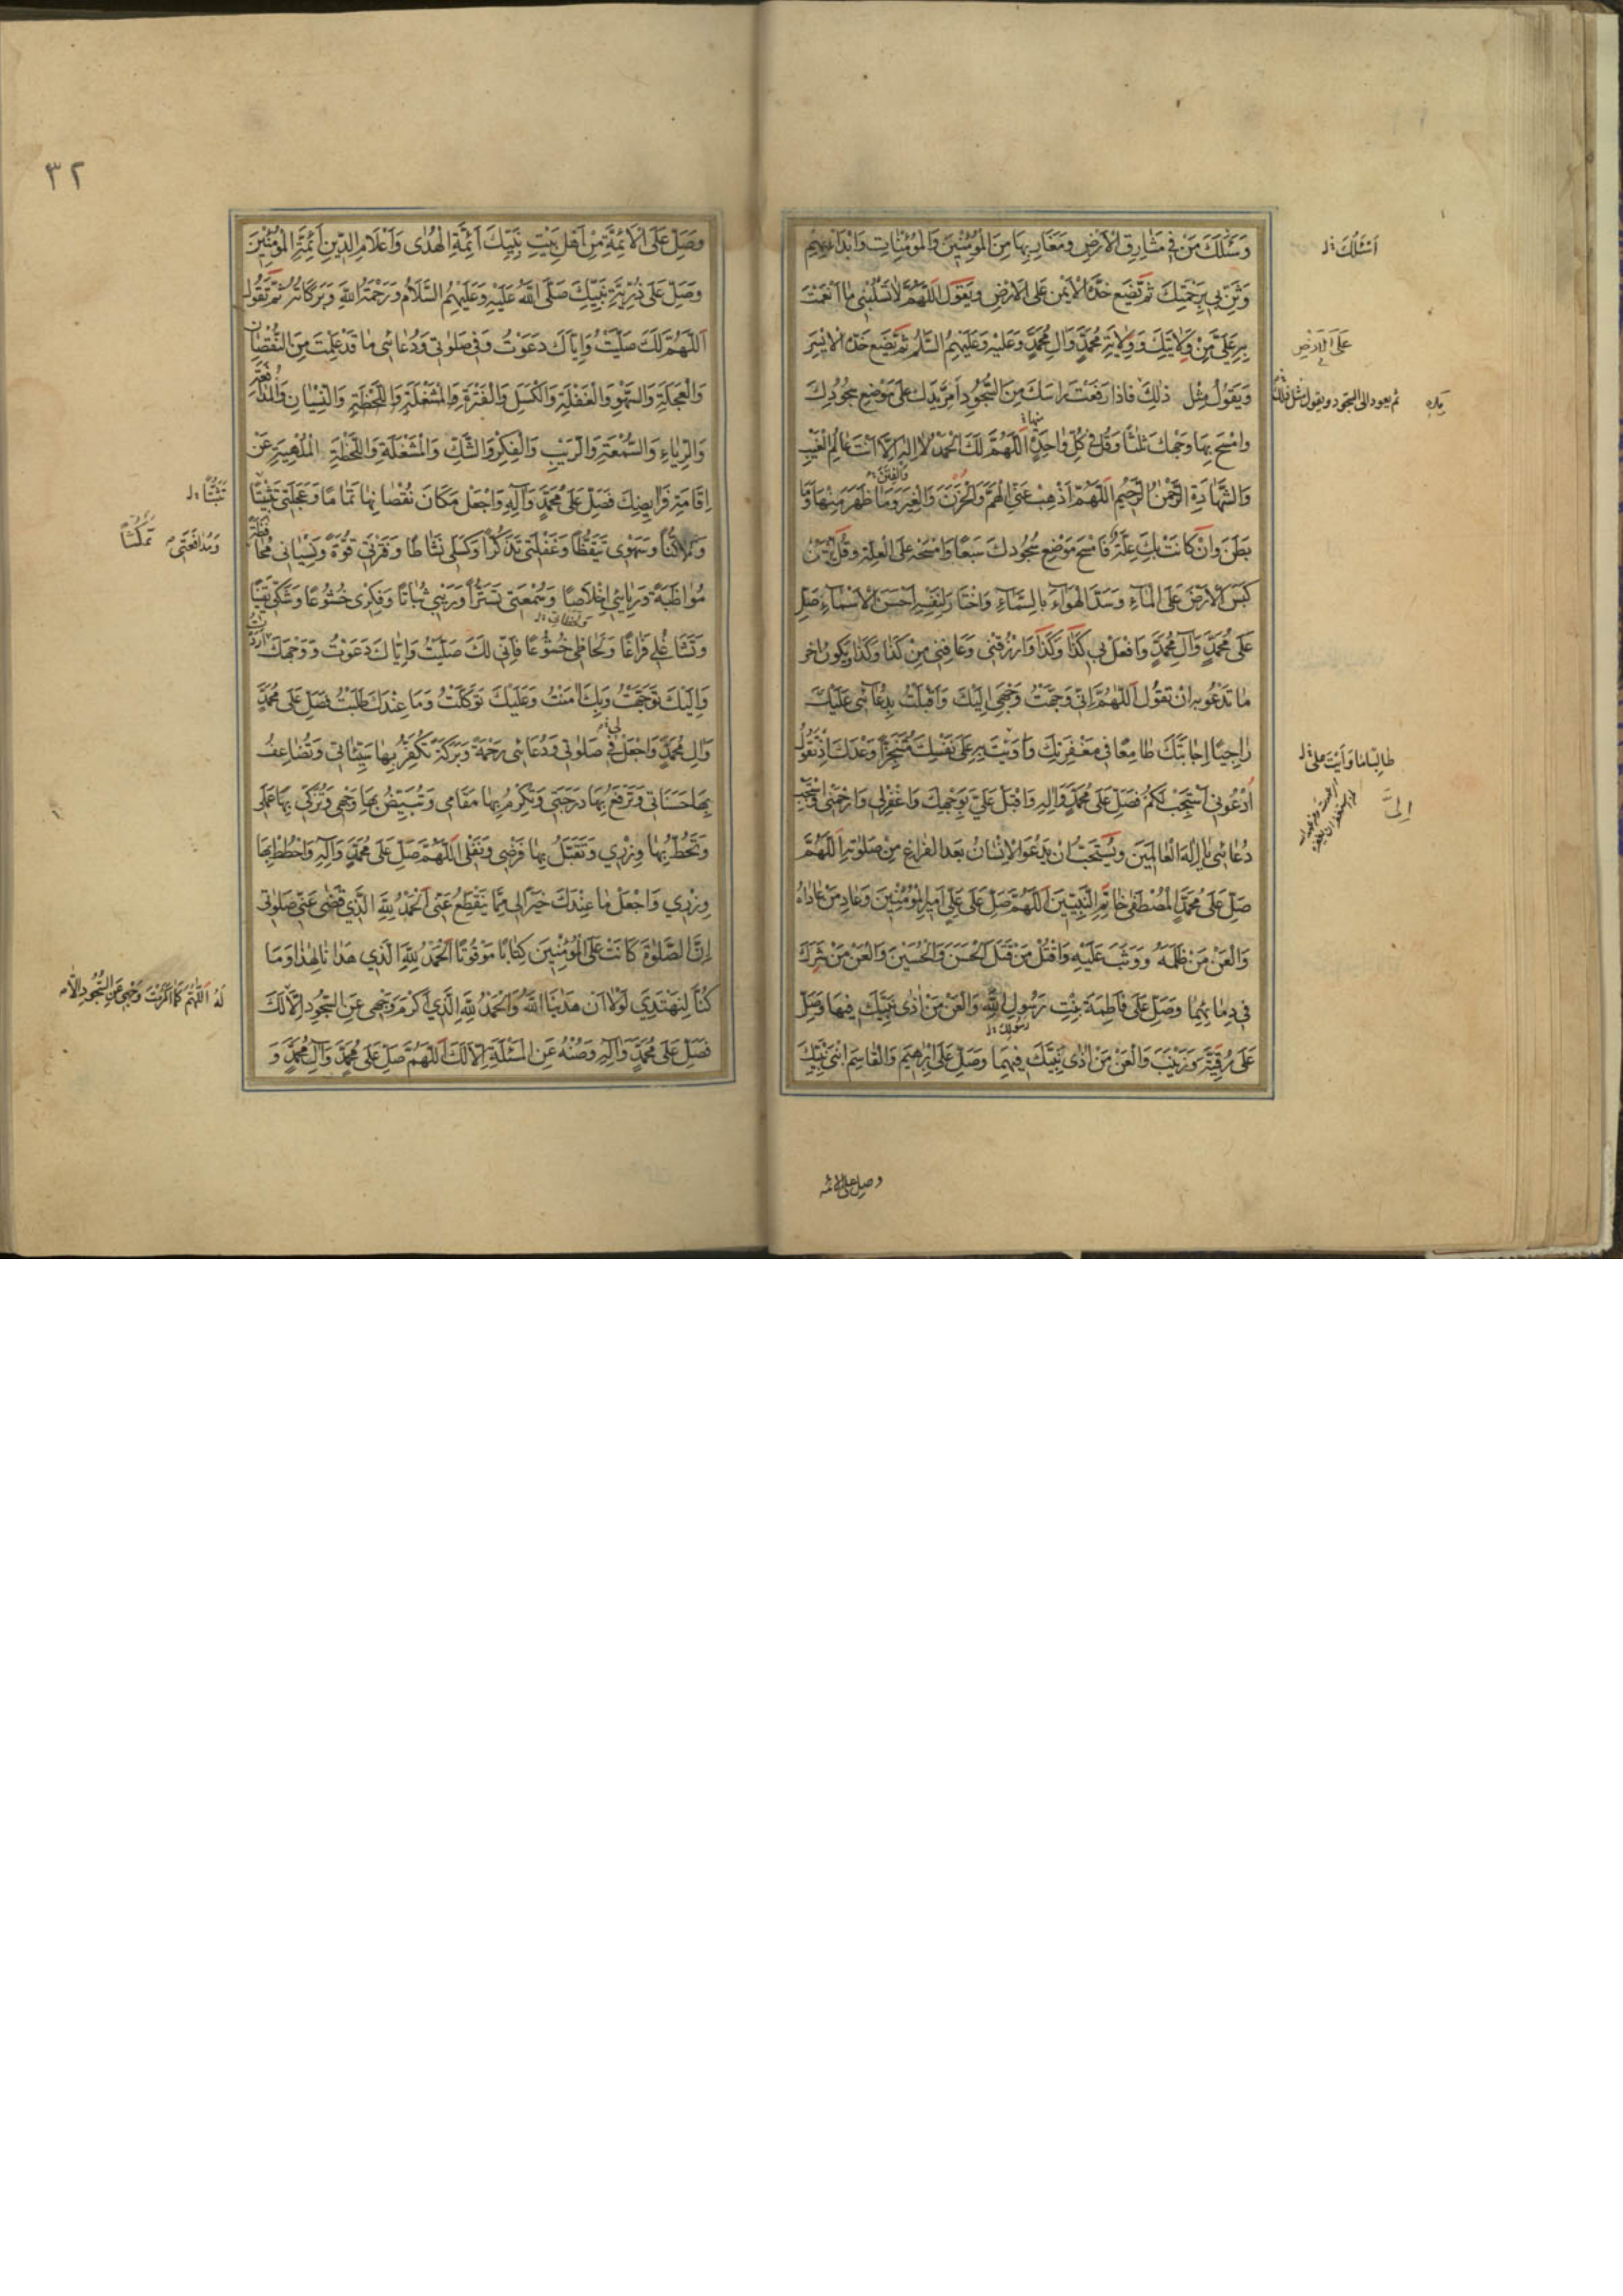 وَسَئَلَكَ مَنْ فِي مَشَارِقِ الْاَرْضِ وَمَغَارِبِهَا مِنَ الْمُؤْمِنِينَ وَالْمُؤْمِنَاتِ وَابْدَأْ بِهِمْ
اَسْئَلُكَ
وَثَنِّ بِي بِرَحْمَتِكَ ثُمَّ تَضَع خَدَّكَ الْاَيْمَنَ عَلَى الْاَرْضِ وَيَقُولُ اَللّٰهُمَّ لَا تَسْلُبْنِي مَا اَنْعَمْتَ
بِهِ عَلَيَّ مِنْ وِلَايَتِكَ وَوِلَايَةِ مُحَمَّدٍ وَآلِ مُحَمَّدٍ وَعَلَيْهِ وَعَلَيْهِمُ السَّلَامُ ثُمَّ تَضَع خَدَّكَ الْاَيْسَرَ
عَلَى الْاَرْضِ
وَيَقُولُ مِثْلَ ذٰلِكَ فَاِذَا رَفَعْتَ رَاسَكَ مِنَ السُّجُودِ اَمِرَّ يَدَكَ عَلَى مَوْضِعِ سُجُودِكَ
ثم يعود الى السجود ويقول مثل ذلك
وَامْسَحْ بِهَا وَجْهَكَ ثَلٰثًا وَقُلْ فِي كُلِّ وَاحِدَةٍ مِنْهَا اَللّٰهُمَّ لَكَ الْحَمْدُ لَا اِلٰهَ اِلَّا اَنْتَ عَالِمُ الْغَيْبِ
وَالشَّهَادَةِ الرَّحْمٰنُ الرَّحِيمُ اَللّٰهُمَّ اَذْهِبْ عَنِّي الْهَمَّ وَالْحُزْنَ وَالْغِيَرَ وَالْفِتَنَ مَا ظَهَرَ مِنْهَا وَمَا
بَطَنَ وَاِنْ كَانَتْ بِكَ عِلَّةٌ فَامْسَحْ مَوْضِعَ سُجُودِكَ سَبْعًا وَامْسَحْهُ عَلَى الْعِلَّةِ وَقُلْ يَا مَنْ
كَبَسَ الْاَرْضَ عَلَى الْمَاءِ وَسَدَّ الْهَوَاءَ بِالسَّمَاءِ وَاخْتَارَ لِنَفْسِهِ اَحْسَنَ الْاَسْمَاءِ صَلِّ
عَلَى مُحَمَّدٍ وَآلِ مُحَمَّدٍ وَافْعَلْ بِي كَذَا وَكَذَا وَارْزُقْنِي وَعَافِنِي مِنْ كَذَا وَكَذَا وَيَكُونُ اٰخِرُ
مَا تَدْعُو بِهِ اَنْ تَقُولَ اَللّٰهُمَّ اِنِّي وَجَّهْتُ وَجْهِي اِلَيْكَ وَاَقْبَلْتُ بِدُعَائِي عَلَيْكَ
رَاجِيًا اِجَابَتَكَ طَامِعًا فِي مَغْفِرَتِكَ وَاَيْتَ بِهِ عَلَى نَفْسِكَ مُتَنَجِّزًا وَعْدَكَ اِذْ تَقُولُ
طالبا ما وايت
اُدْعُونِي اَسْتَجِبْ لَكُمْ فَصَلِّ عَلَى مُحَمَّدٍ وَآلِهِ وَاَقْبِلْ عَلَيَّ بِوَجْهِكَ وَاغْفِرْ لِي وَارْحَمْنِي وَاسْتَجِبْ
اِلَيَّ
دُعَائِي يَا اِلٰهَ الْعَالَمِينَ وَيُسْتَحَبُّ اَنْ يَدْعُوَ الْاِنْسَانُ بَعْدَ الْفَرَاغِ مِنْ صَلٰوتِهِ اَللّٰهُمَّ
صَلِّ عَلَى مُحَمَّدٍ الْمُصْطَفٰى خَاتَمِ النَّبِيِّينَ اَللّٰهُمَّ صَلِّ عَلَى عَلِيٍّ اَمِيرِ الْمُؤْمِنِينَ وَعَادِ مَنْ عَادَاهُ
وَالْعَنْ مَنْ ظَلَمَهُ وَوَثَبَ عَلَيْهِ وَاقْتُلْ مَنْ قَتَلَ الْحَسَنَ وَالْحُسَيْنَ وَالْعَنْ مَنْ شَرِكَ
فِي دِمَائِهِمَا وَصَلِّ عَلَى فَاطِمَةَ بِنْتِ رَسُولِ اللّٰهِ وَالْعَنْ مَنْ اٰذٰى نَبِيَّكَ فِيهَا وَصَلِّ
رسولك
عَلَى رُقَيَّةَ وَزَيْنَبَ وَالْعَنْ مَنْ اٰذٰى نَبِيَّكَ فِيهِمَا وَصَلِّ عَلَى اِبْرَاهِيمَ وَالْقَاسِمِ ابْنَيْ نَبِيِّكَ
وصل على الائمة
٣٢
وَصَلِّ عَلَى الْاَئِمَّةِ مِنْ اَهْلِ بَيْتِ نَبِيِّكَ اَئِمَّةِ الْهُدٰى وَاَعْلَامِ الدِّينِ اَئِمَّةِ الْمُؤْمِنِينَ
وَصَلِّ عَلَى ذُرِّيَّةِ نَبِيِّكَ صَلَّى اللّٰهُ عَلَيْهِ وَعَلَيْهِمُ السَّلَامُ وَرَحْمَةُ اللّٰهِ وَبَرَكَاتُهُ ثُمَّ تَقُولُ
اَللّٰهُمَّ لَكَ صَلَّيْتُ وَاِيَّاكَ دَعَوْتُ وَفِي صَلٰوتِي وَدُعَائِي مَا قَدْ عَلِمْتَ مِنَ النُّقْصَانِ
وَالْعَجَلَةِ وَالسَّهْوِ وَالْغَفْلَةِ وَالْكَسَلِ وَالْفَتْرَةِ وَالْمَشْغَلَةِ وَاللَّحْظَةِ وَالنِّسْيَانِ وَالْمُدَافَعَةِ
وَالرِّيَاءِ وَالسُّمْعَةِ وَالرَّيْبِ وَالْفِكْرِ وَالشَّكِّ وَالْمَشْغَلَةِ وَاللَّحْظَةِ الْمُلْهِيَةِ عَنْ
اِقَامَةِ فَرَايِضِكَ فَصَلِّ عَلَى مُحَمَّدٍ وَآلِهِ وَاجْعَلْ مَكَانَ نُقْصَانِهَا تَمَامًا وَعَجَلَتِي تَثَبُّتًا
تَثَبُّتًا
وَتَمَكُّنًا وَسَهْوِي تَيَقُّظًا وَغَفْلَتِي تَذَكُّرًا وَكَسَلِي نَشَاطًا وَفَتْرَتِي قُوَّةً وَنِسْيَانِي مُحَافَظَةً
وَمُدَافَعَتِي تَمَكُّثًا
مُوَاظَبَةً وَرِيَائِي اِخْلَاصًا وَسُمْعَتِي تَسَتُّرًا وَرَيْبِي ثَبَاتًا وَفِكْرِي خُشُوعًا وَشَكِّي يَقِينًا
وَتَشَاغُلِي فَرَاغًا وَلِحَاظِي خُشُوعًا فَاِنِّي لَكَ صَلَّيْتُ وَاِيَّاكَ دَعَوْتُ وَوَجْهَكَ اَرَدْتُ
وَاِلَيْكَ تَوَجَّهْتُ وَبِكَ اٰمَنْتُ وَعَلَيْكَ تَوَكَّلْتُ وَمَا عِنْدَكَ طَلَبْتُ فَصَلِّ عَلَى مُحَمَّدٍ
وَآلِ مُحَمَّدٍ وَاجْعَلْ لِي فِي صَلٰوتِي وَدُعَائِي رَحْمَةً وَبَرَكَةً تُكَفِّرُ بِهَا سَيِّئَاتِي وَتُضَاعِفُ
بِهَا حَسَنَاتِي وَتَرْفَعُ بِهَا دَرَجَتِي وَتُكْرِمُ بِهَا مَقَامِي وَتُبَيِّضُ بِهَا وَجْهِي وَتُزَكِّي بِهَا عَمَلِي
وَتَحُطُّ بِهَا وِزْرِي وَتَقْبَلُ بِهَا فَرْضِي وَنَفْلِي اَللّٰهُمَّ صَلِّ عَلَى مُحَمَّدٍ وَآلِهِ وَاحْطُطْ بِهَا
وِزْرِي وَاجْعَلْ مَا عِنْدَكَ خَيْرًا لِي مِمَّا يَنْقَطِعُ عَنِّي اَلْحَمْدُ لِلّٰهِ الَّذِي قَضٰى عَنِّي صَلٰوتِي
اِنَّ الصَّلٰوةَ كَانَتْ عَلَى الْمُؤْمِنِينَ كِتَابًا مَوْقُوتًا اَلْحَمْدُ لِلّٰهِ الَّذِي هَدَانَا لِهٰذَا وَمَا
كُنَّا لِنَهْتَدِيَ لَوْلَا اَنْ هَدٰينَا اللّٰهُ وَالْحَمْدُ لِلّٰهِ الَّذِي اَكْرَمَ وَجْهِي عَنِ السُّجُودِ اِلَّا لَكَ
لَهُ اَللّٰهُمَّ كَمَا اَكْرَمْتَ وَجْهِي عَنِ السُّجُودِ اِلَّا
فَصَلِّ عَلَى مُحَمَّدٍ وَآلِهِ وَصُنْهُ عَنِ الْمَسْئَلَةِ اِلَّا لَكَ اَللّٰهُمَّ صَلِّ عَلَى مُحَمَّدٍ وَآلِ مُحَمَّدٍ وَ